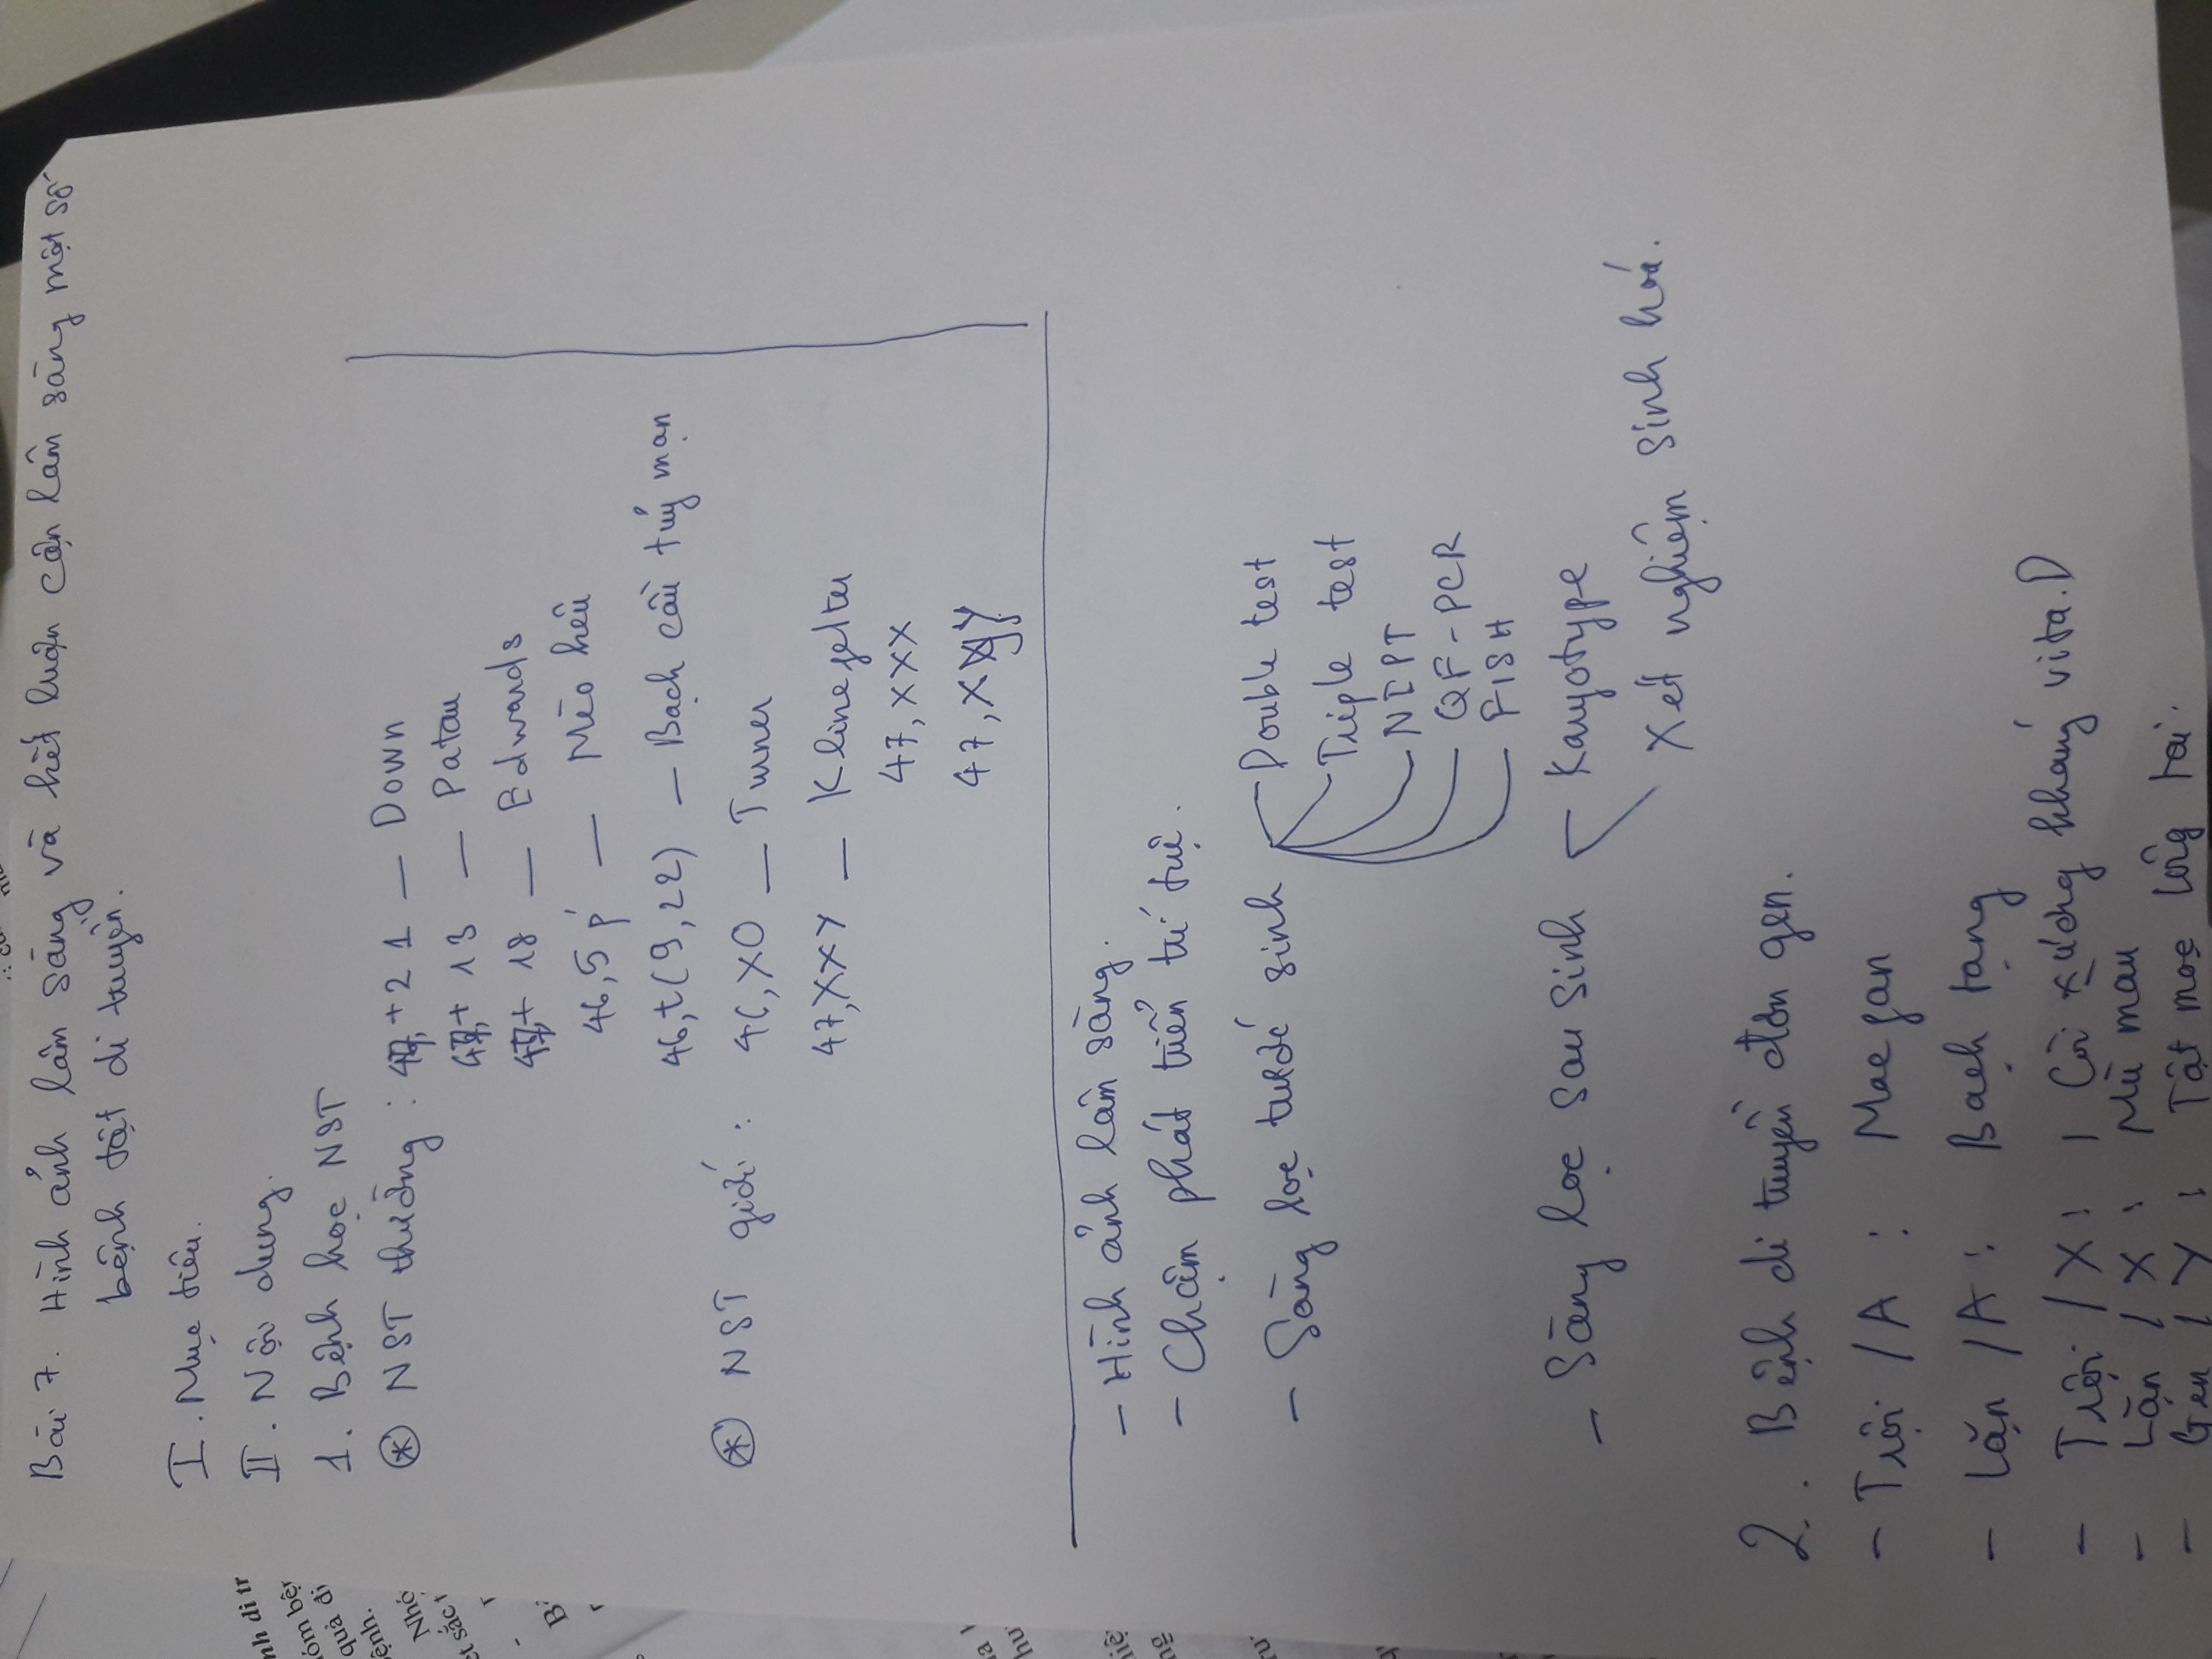 Bài 7. Hình ảnh lâm sàng và kết luận cận lâm sàng một số
bệnh tật di truyền.
I. Mục tiêu.
II. Nội dung.
1. Bệnh học NST
* NST thường : 47,+21 — Down
47,+ 13 — Patau
47,+ 18 — Edwards
46,5p — Mèo kêu
46,t(9,22) — Bạch cầu tuỷ mạn
* NST giới : 46,XO — Turner
47,XXY — Klinefelter
47,XXX
47,XYY
- Hình ảnh lâm sàng.
- Chậm phát triển trí tuệ.
- Sàng lọc trước sinh
Double test
Triple test
NIPT
QF-PCR
FISH
- Sàng lọc sau sinh
Karyotype
Xét nghiệm sinh hoá.
2. Bệnh di truyền đơn gen.
- Trội /A : Macfan
- Lặn /A : Bạch tạng
- Trội /X : Còi xương kháng vita.D
- Lặn / X : Mù màu
- Gen / Y : Tật mọc lông tai.
nh di tr
óm bệr
quả đi
ệnh.
Nhó